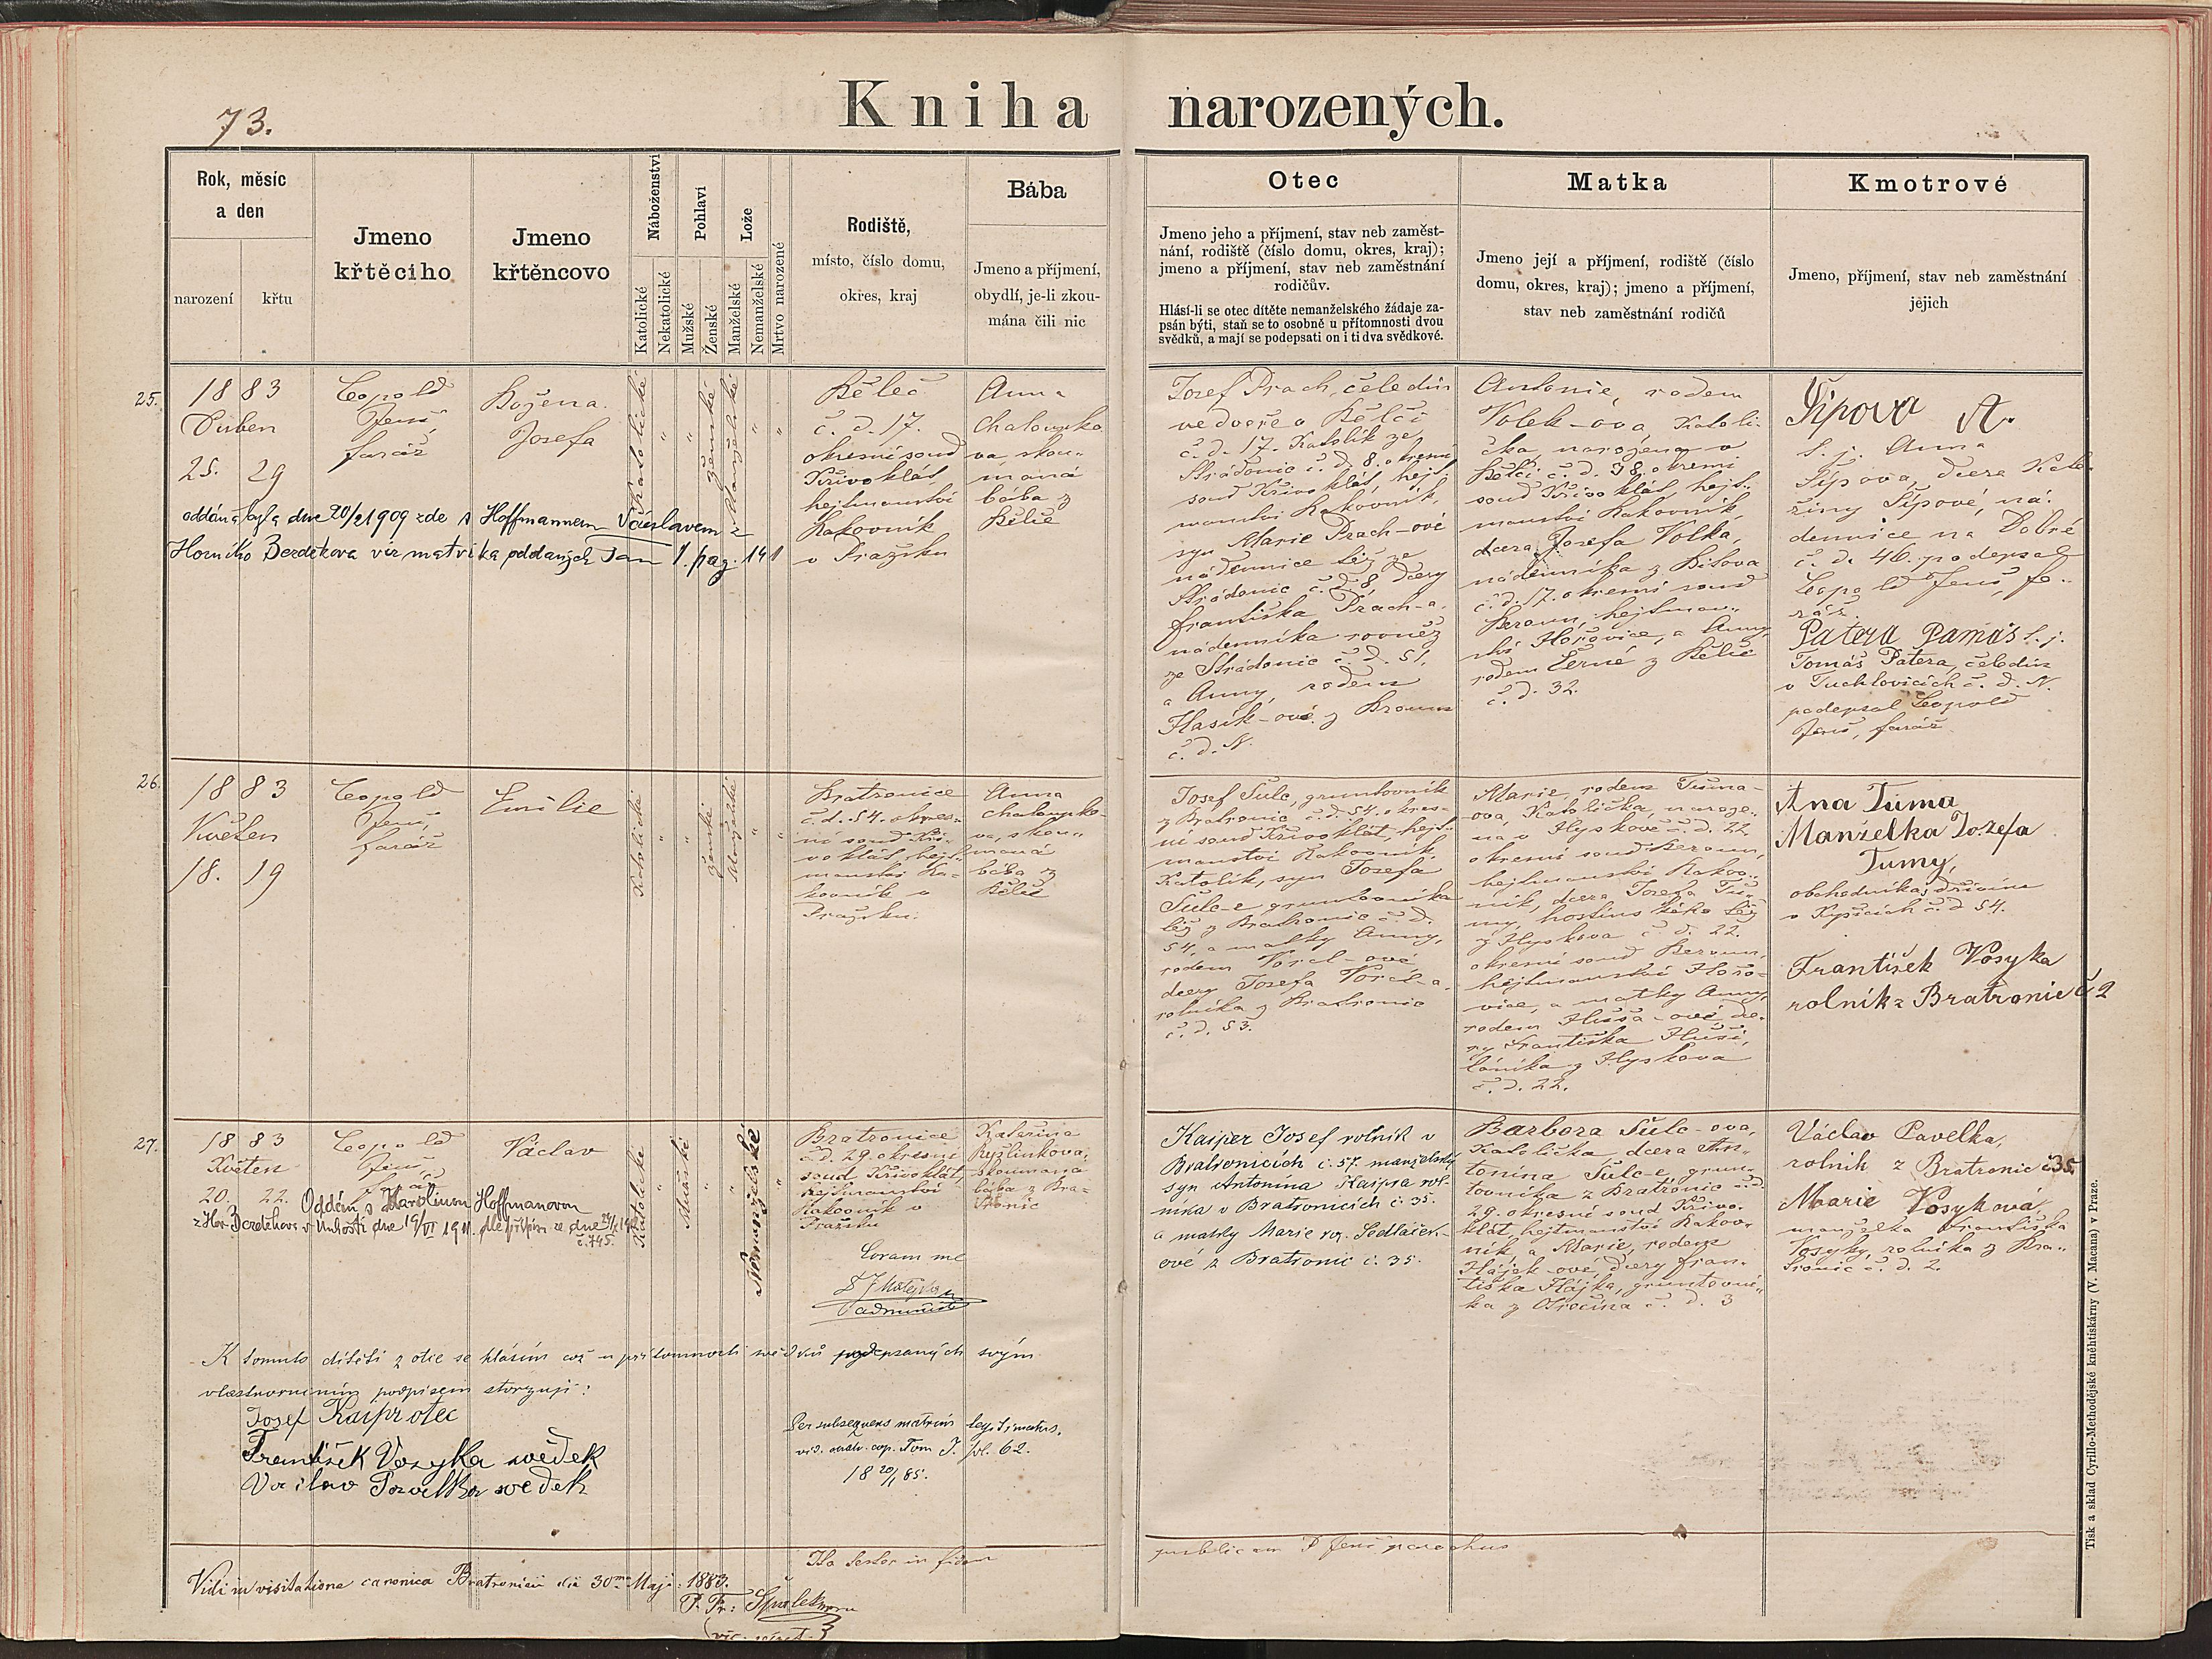 73.
Kniha narozených.
Rok, měsíc
a den
narození
křtu
Jmeno
křtěcího
Jmeno
křtěncovo
Náboženství
Katolické
Nekatolické
Pohlaví
Mužské
Ženské
Lože
Manželské
Nemanželské
Mrtvo narozené
Rodiště,
místo, číslo domu,
okres, kraj
Bába
Jmeno a příjmení,
obydlí, je-li zkou-
mána čili nic
Otec
Jmeno jeho a příjmení, stav neb zaměst-
nání, rodiště (číslo domu, okres, kraj);
jmeno a příjmení, stav neb zaměstnání
rodičův.
Hlásí-li se otec dítěte nemanželského žádaje za-
psán býti, staň se to osobně u přítomnosti dvou
svědků, a mají se podepsati on i ti dva svědkové.
Matka
Jmeno její a příjmení, rodiště (číslo
domu, okres, kraj); jmeno a příjmení,
stav neb zaměstnání rodičů
Kmotrové
Jmeno, příjmení, stav neb zaměstnání
jejich
25.
1883
Duben
25. 29
Leopold
Jenš,
farář
Božena
Josefa
Katolické
ženské
Manželské
Běleč
č. d. 17.
okresní soud
Křivoklát,
hejtmanství
Rakovník
v Pražsku
Anna
Chaloupko
va, skou-
maná
bába z
Bělče
oddána byla dne 20/2 1909 zde s Hoffmannem Václavem z
Horního Bezděkova viz matrika oddaných Tom I. pag. 141
Josef Prach, čeledín
ve dvoře v Bělči
č. d. 17. Katolík ze
Stradonic č. d. 8. okresní
soud Křivoklát, hejt-
manství Rakovník,
syn Marie Prach-ové
nádennice též ze
Stradonic č. d. 8, dcery
Františka Prach-a,
nádenníka rovněž
ze Stradonic č. d. 51.
a Anny, rodem
Hlasík-ové z Brouma
č. d. N.
Antonie, rodem
Volek-ova Katoli-
čka, narozena v
Bělči č. d. 38. okresní
soud Křivoklát, hejt-
manství Rakovník,
dcera Josefa Volka,
nádenníka z
č. d. 17. okresní soud
Beroun, hejtman-
ství Hořovice, a Anny
rodem Černé z Bělče
č. d. 32.
Šípova A.
t. j. Anna
Šípova, dcera Kate
řiny Šípové, ná-
dennice na Dobré
č. d. 46. podepsal
Leopold Jenš, fa-
rář
Patera Tamáš t. j.
Tomáš Patera, čeledín
v Tuchlovicích č. d. N.
podepsal Leopold
Jenš, farář
26.
1883
Květen
18. 19
Leopold
Jenš,
farář
Emilie
Katolické
ženské
Manželské
Bratronice
č. d. 54. okres-
ní soud Kři-
voklát, hejt-
manství Ra-
kovník v
Pražsku.
Anna
Chaloupko-
va, skou-
maná
bába z
Bělče
Josef Šulc, gruntovník
z Bratronic č. d. 54. okres-
ní soud Křivoklát, hejt-
manství Rakovník,
Katolík, syn Josefa
Šulc-e gruntovníka
též z Bratronic č. d.
54, a matky Anny,
rodem Vorel-ové
dcery Josefa Vorel-a,
rolníka z Bratronic
č. d. 53.
Marie, rodem Tůma-
ova, Katolička, naroze-
na v Hyskově č. d. 22
okresní soud Beroun,
hejtmanství Rakov-
ník, dcera Josefa Tů-
my, hostinského též
z Hyskova č. d. 22.
okresní soud Beroun,
hejtmanství Hořo-
vice, a matky Anny,
rodem Huša-ové dce-
ry Františka Huši,
láníka z Hyskova
č. d. 22.
Ana Tuma
Manželka Jozefa
Tumy,
obchodníka dřívím
v Kyšicích č. d 54.
František Vosyka
rolník z Bratronic č 2
27.
1883
Květen
20. 22.
Leopold
Jenš,
farář
Václav
Katolické
Mužské
Nemanželské
Bratronice
č. d. 29. okresní
soud Křivoklát,
hejtmanství
Rakovník v
Pražsku
Kateřina
Ryzlinkova,
skoumaná
bába z Bra-
tronic
Oddán s Karolinou Hoffmanovou
z Hor. Bezděkova v Unhošti dne 19/VI 1911. dle přípisu ze dne
č. 745.
Coram me
administ
Kaiper Josef rolník v
Bratronicích č. 57. manželský
syn Antonína Kaipra rol-
níka v Bratronicích č. 35.
a matky Marie roz. Sedláček-
ové z Bratronic č. 35.
Barbora Šulc-ova,
Katolička, dcera An-
tonína Šulc-e, grun-
tovníka z Bratronic č. d.
29. okresní soud Křivo-
klát, hejtmanství Rakov-
ník, a Marie, rodem
Hájek-ové, dcery Fran-
tiška Hájka, gruntovní-
ka z Otročína č. d. 3
Václav Pavelka,
rolník z Bratronic č 35.
Marie Vosyková,
manželka Františka
Vosyky, rolníka z Bra-
tronic č. d. 2.
K tomuto dítěti z otce se hlásím což u přítomnosti svědků podepsaných svým
vlastnoručním podpisem stvrzuji:
Josef Kaipr otec
František Vosyka svědek
Vacslav Pavelka svedek
Per subsequens matrim legitimatus.
vid. matr. cop. Tom I. fol. 62.
18 20/1 85.
Ita testor in fidem
publicam P Jenš parochus
Vidi in visitatione canonica Bratronicii die 30ma Maji 1883.
Tisk a sklad Cyrillo-Methodějské knéhtiskárny (V. Macana) v Praze.